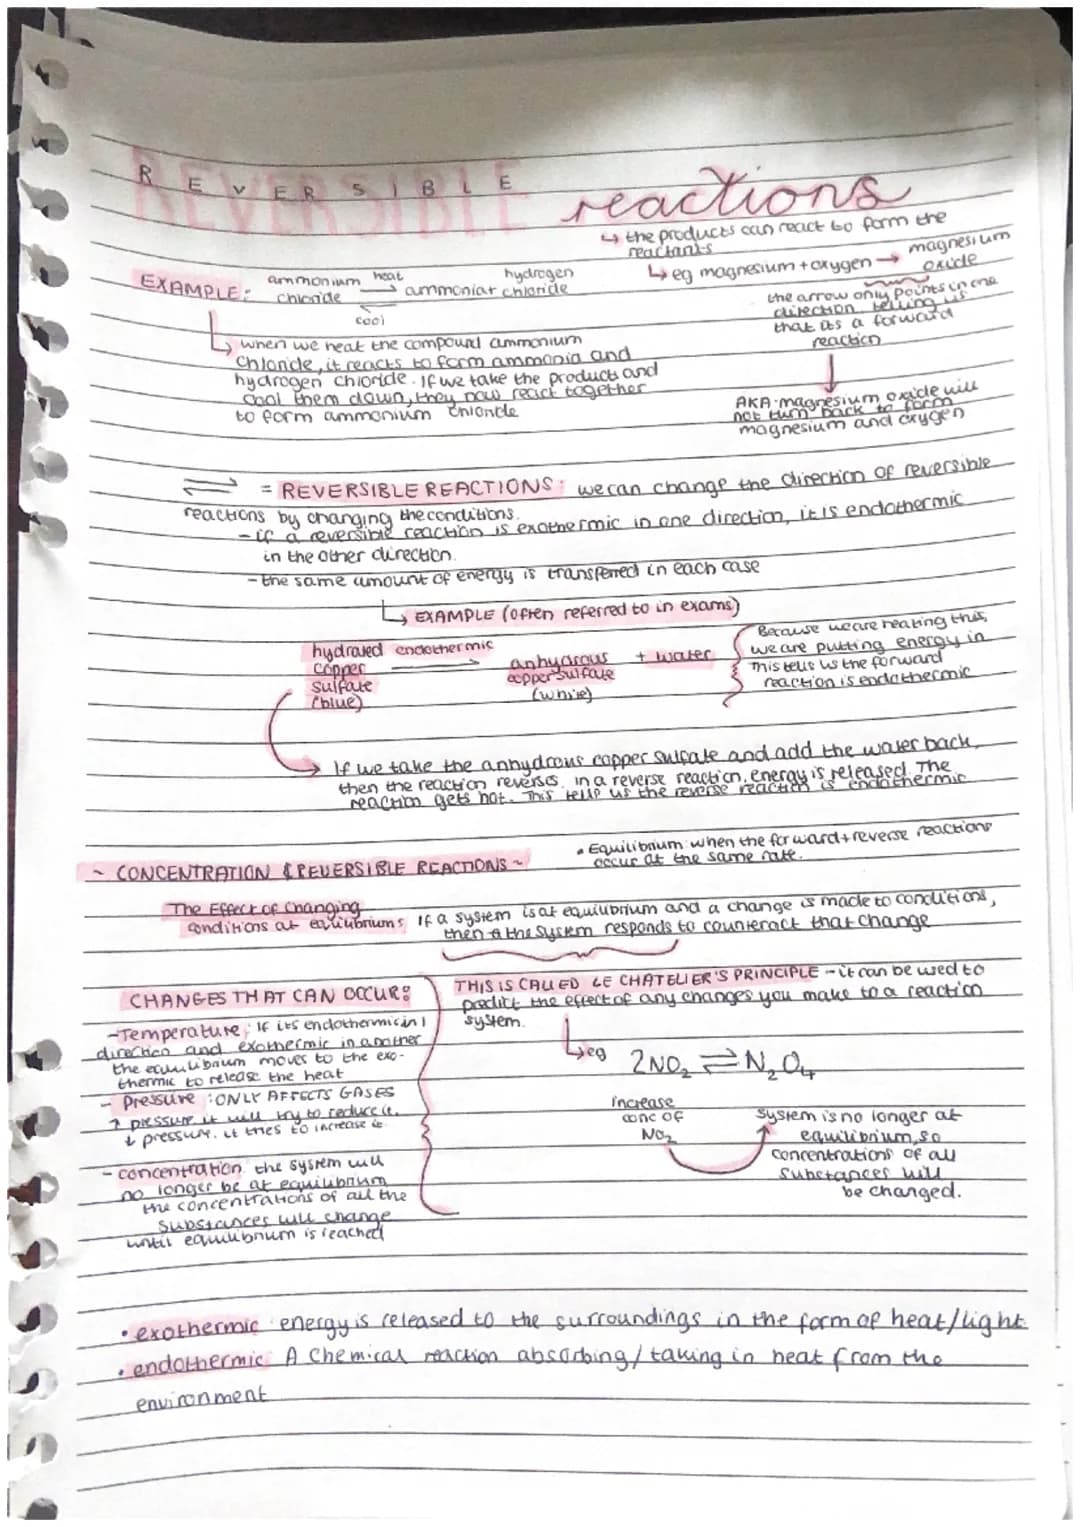 REVERSIBLE reactions
↳ the products can react to form the
reactants
↳ eg magnesium + oxygen → magnesium
oxide
the arrow only points in one
direction, telling us
that its a forward
reaction
AKA magnesium oxide will
not turn back to form
magnesium and oxygen
EXAMPLE: ammonium heat hydrogen
chloride ⇌ ammonia+ chloride
cool
↳ when we heat the compound ammonium
chloride, it reacts to form ammonia and
hydrogen chloride. If we take the products and
cool them down, they now react together
to form ammonium chloride
⇌ = REVERSIBLE REACTIONS: we can change the direction of reversible
reactions by changing the conditions.
- if a reversible reaction is exothermic in one direction, it is endothermic
in the other direction.
- the same amount of energy is transferred in each case
↳ EXAMPLE (often referred to in exams)
hydrated endothermic
copper → anhydrous + water
sulfate copper sulfate
(blue) (white)
Because we are heating this,
we are putting energy in
This tells us the forward
reaction is endothermic
If we take the anhydrous copper sulfate and add the water back,
then the reaction reverses. in a reverse reaction, energy is released. The
reaction gets hot. This tells us the reverse reaction is endothermic
• Equilibrium: when the forward + reverse reactions
occur at the same rate.
~ CONCENTRATION & REVERSIBLE REACTIONS ~
The Effect of Changing
conditions at equilibriums If a system is at equilibrium and a change is made to conditions,
then the system responds to counteract that change
THIS IS CALLED LE CHATELIER'S PRINCIPLE - it can be used to
predict the effect of any changes you make to a reaction
system.
↳ eg 2NO₂ ⇌ N₂O₄
increase
conc of
NO₂
system is no longer at
equilibrium, so
concentrations of all
substances will
be changed.
CHANGES THAT CAN OCCUR:
- Temperature: If its endothermic in 1
direction and exothermic in another
the equilibrium moves to the exo-
thermic to release the heat
- Pressure: ONLY AFFECTS GASES
↑ pressure it will try to reduce it.
↓ pressure. it tries to increase it
- concentration the system will
no longer be at equilibrium
the concentrations of all the
substances will change
until equilibrium is reached
• exothermic: energy is released to the surroundings in the form of heat/light
• endothermic: A chemical reaction absorbing/taking in heat from the
environment